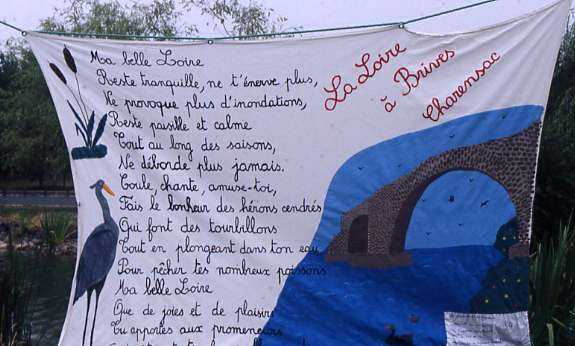 Ma belle Loire
Reste tranquille, ne t'énerve plus,
Ne provoque plus d'inondations,
Reste paisible et calme
Tout au long des saisons,
Ne déborde plus jamais.
Coule, chante, amuse-toi,
Fais le bonheur des hérons cendrés
Qui font des tourbillons
Tout en plongeant dans ton eau
Pour pêcher tes nombreux poissons
Ma belle Loire
Que de joies et de plaisirs
Tu apportes aux promeneurs
La Loire
à Brives
Charensac